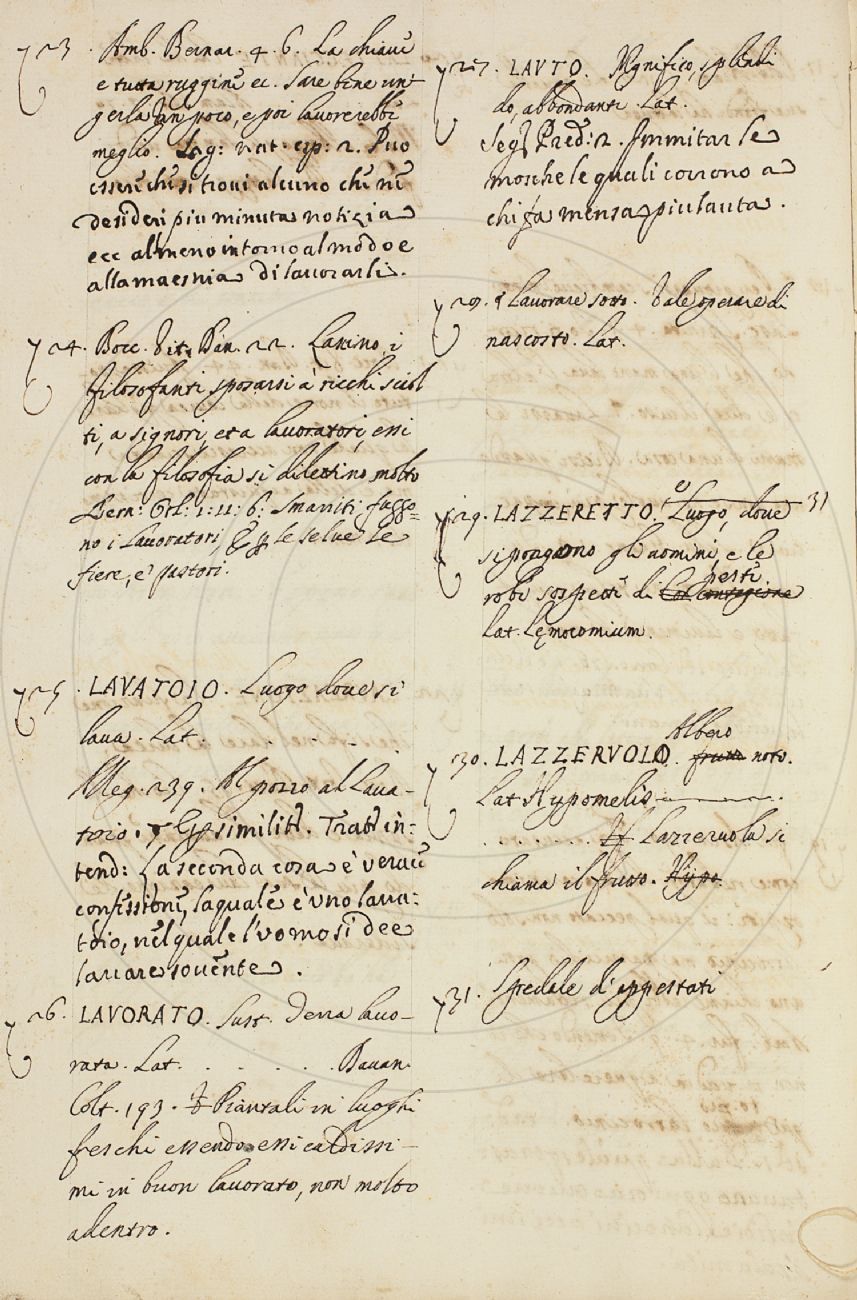 723. Amb. Bernar. 4. 6. La chiave
è tutta ruggine ec. Sare bene un-
gerla un poco, e poi lavorerebbe
meglio. Sag: nat: esp: 2. Puo
essere che si trovi alcuno che ne
desideri piu minuta notizia
ecc almeno intorno al modo e
alla maestria di lavorarli.
724. Bocc. Vit. Dan. 22. Lascino i
filosofanti sposarsi a' ricchi stol
ti, a signori, et a lavoratori, essi
con la filosofia si dilettino molto
Bern: Orl: 1: 11: 6: Smarriti fuggo=
no i Lavoratori, E p le selve le
fiere, e' pastori.
725. LAVATOIO. Luogo dove si
lava. Lat. . . . .
Alleg. 239. Al pozzo al Lava-
toio. similit. Tratt in:
tend: La seconda cosa è verace
confessione, la quale è uno lava:
toio, nel quale l'uomo si dee
lavare sovente.
726. LAVORATO. Sust. Terra lavo-
rata. Lat. . . . . . Davan.
Colt. 193. Piantali in luoghi
freschi essendo essi caldissi-
mi in buon lavorato, non molto
adentro.
727. LAVTO. Magnifico, splendi
do, abbondante. Lat.
Segr Pred: 2. Immitar le
mosche le quali corrono a
chi fa mensa piu lauta.
729. Lavorare sotto. Vale operare di
nascosto. Lat.
729. LAZZERETTO. Luogo, dove 31
si pongono gli uomini, e le
robe sospette di peste
lat. Lęmocomium.
730. LAZZERVOLO. Albero
frutto noto.
Lat Hypomelis
. . . . . . . Lazzeruola si
chiama il frutto. Hypo.
731. Spedale d'appestati